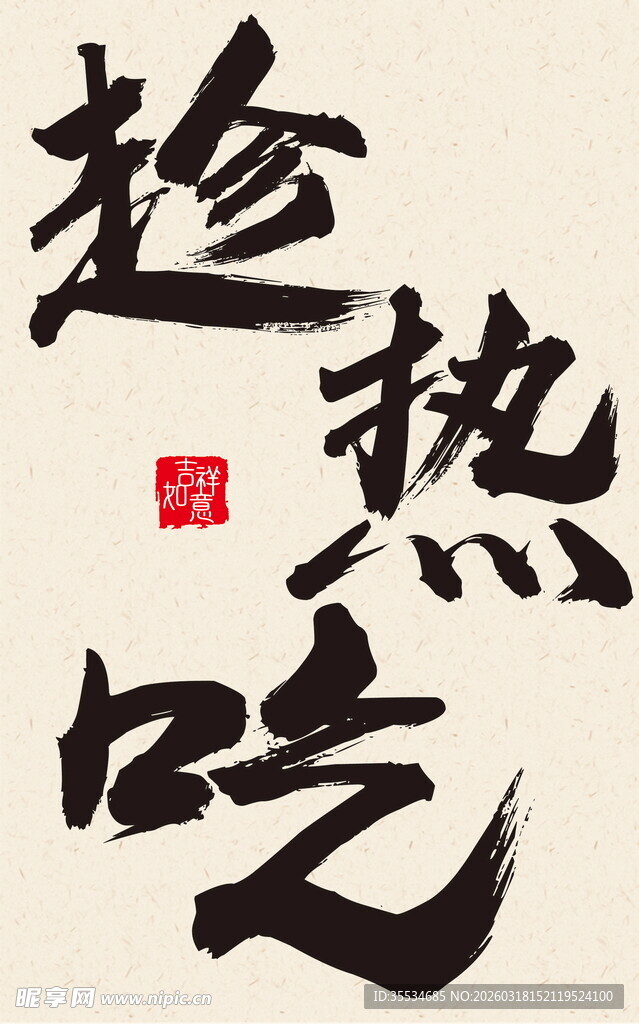 趁
热
吃
吉祥
如意
昵享网 www.nipic.cn
ID:35534685 NO:20260318152119524100